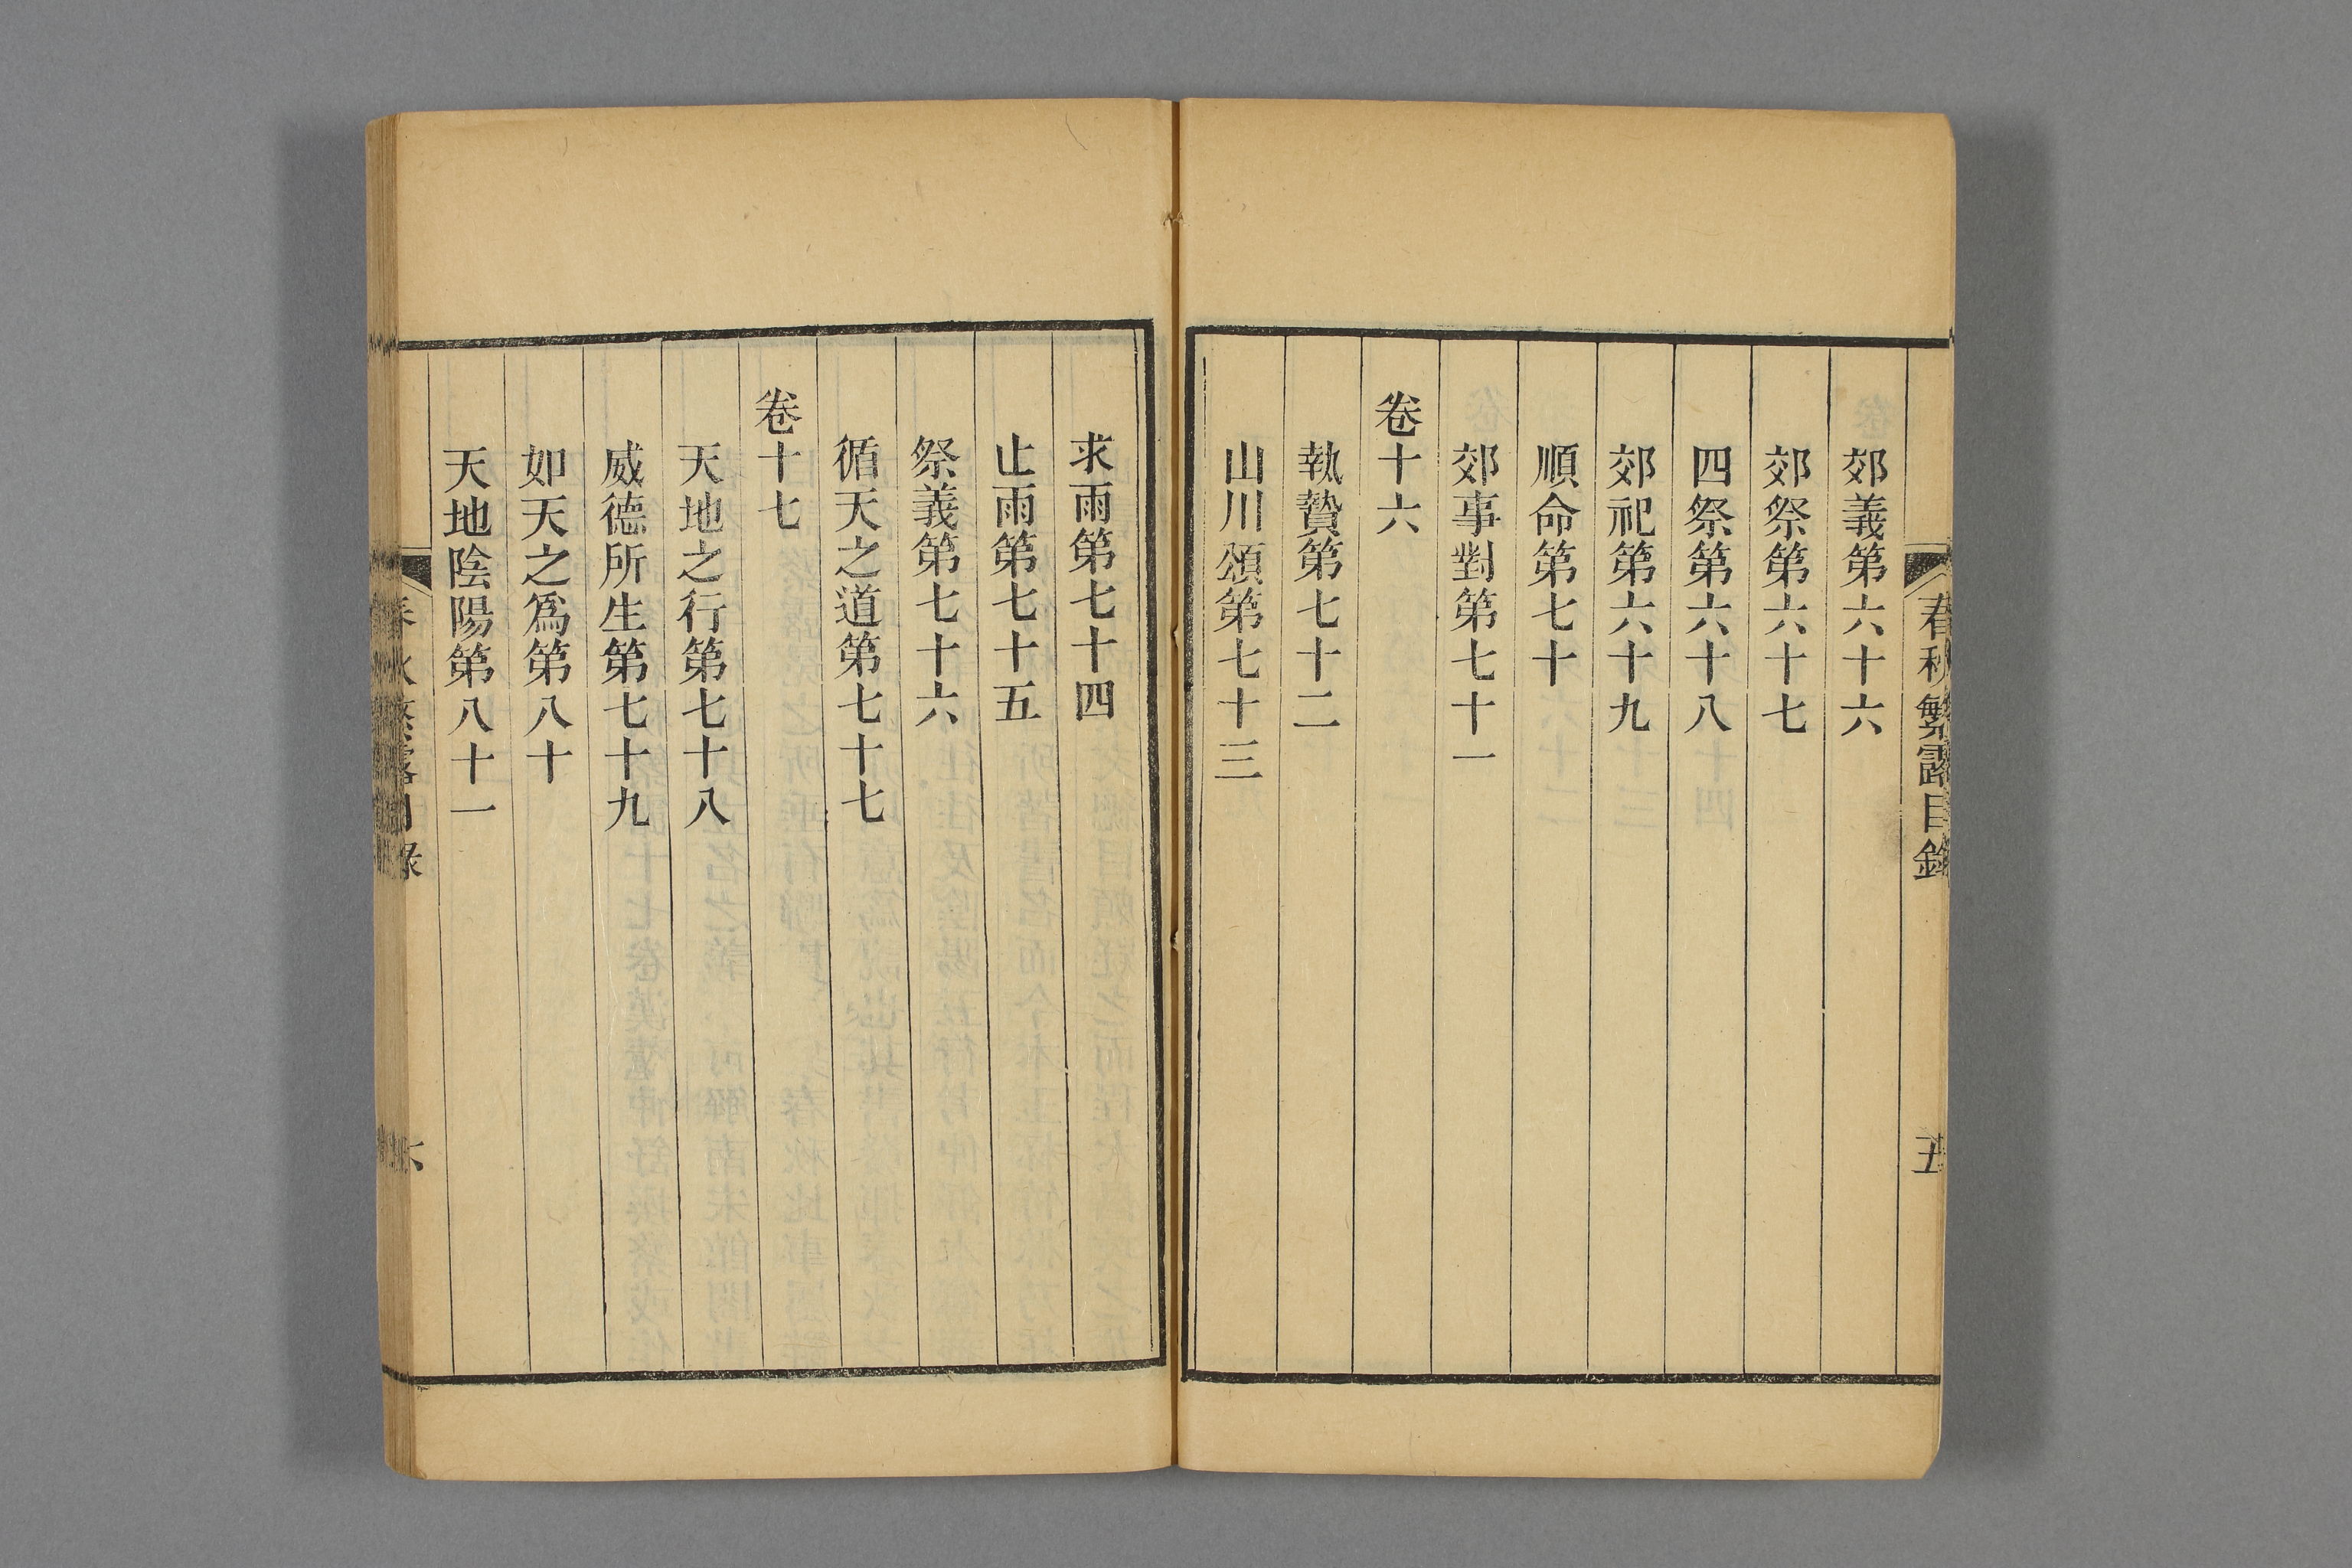 春秋繁露目錄
五
郊義第六十六
郊祭第六十七
四祭第六十八
郊祀第六十九
順命第七十
郊事對第七十一
卷十六
執贄第七十二
山川頌第七十三
求雨第七十四
止雨第七十五
祭義第七十六
循天之道第七十七
卷十七
天地之行第七十八
威德所生第七十九
如天之爲第八十
天地陰陽第八十一
春秋繁露目錄
六